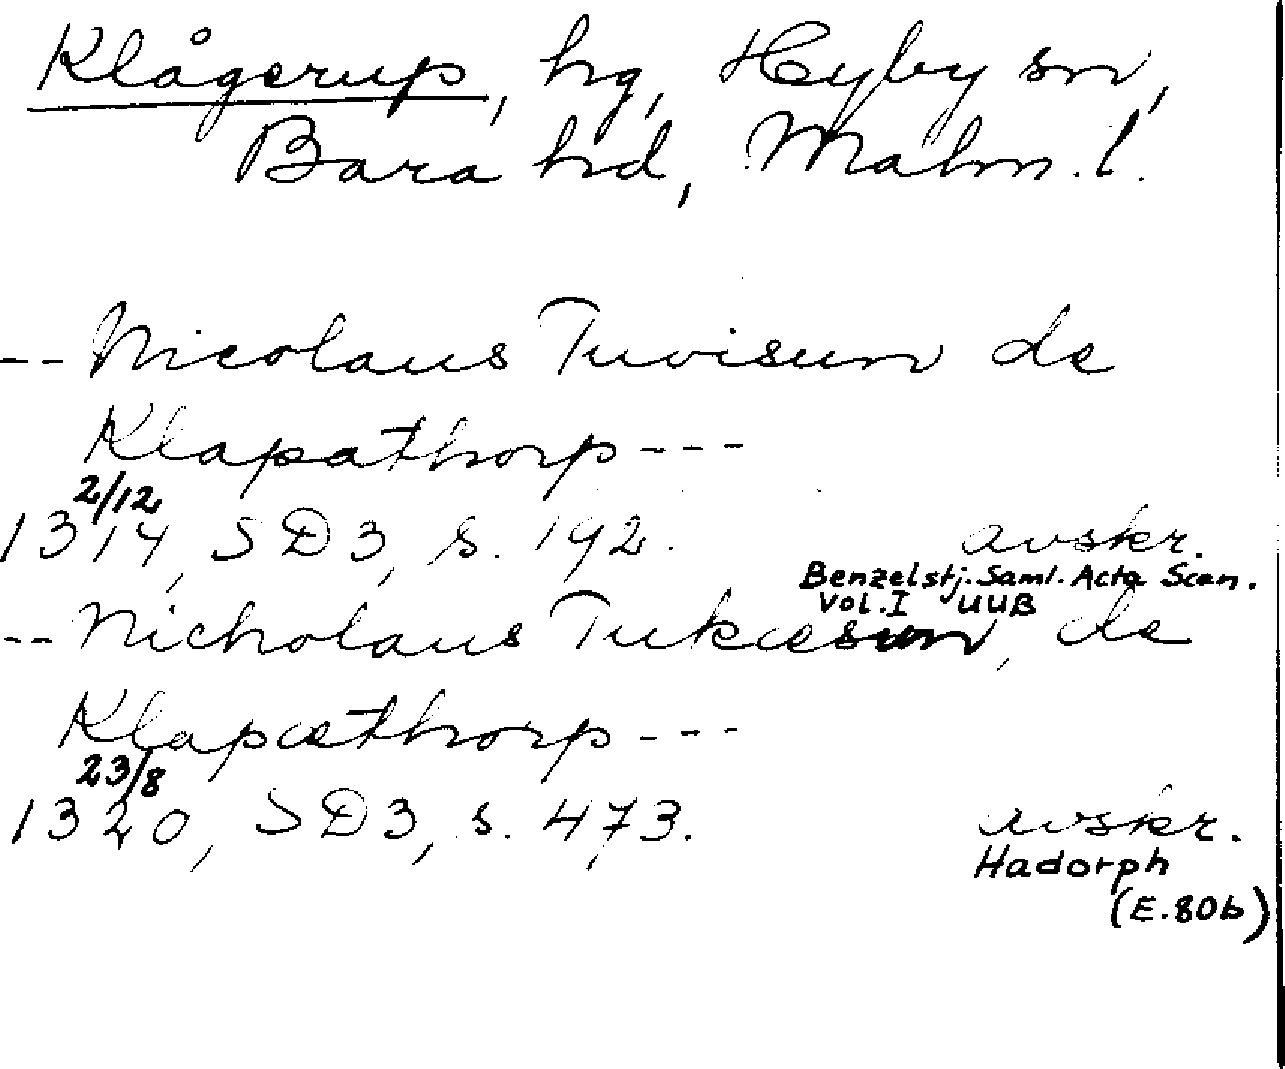 Klågerup, hg, Hyby sn,
Bara hd, Malm. l.
-- Nicolaus Tuvisun de
Klapathorp ---
2/12
1314, SD3, s. 192. avskr.
Benzelstj. Saml. Acta Scan.
Vol. I UUB
-- Nicholaus Tukæsun, de
Klapæthorp ---
23/8
1320, SD3, s. 473. avskr.
Hadorph
(E.80b)